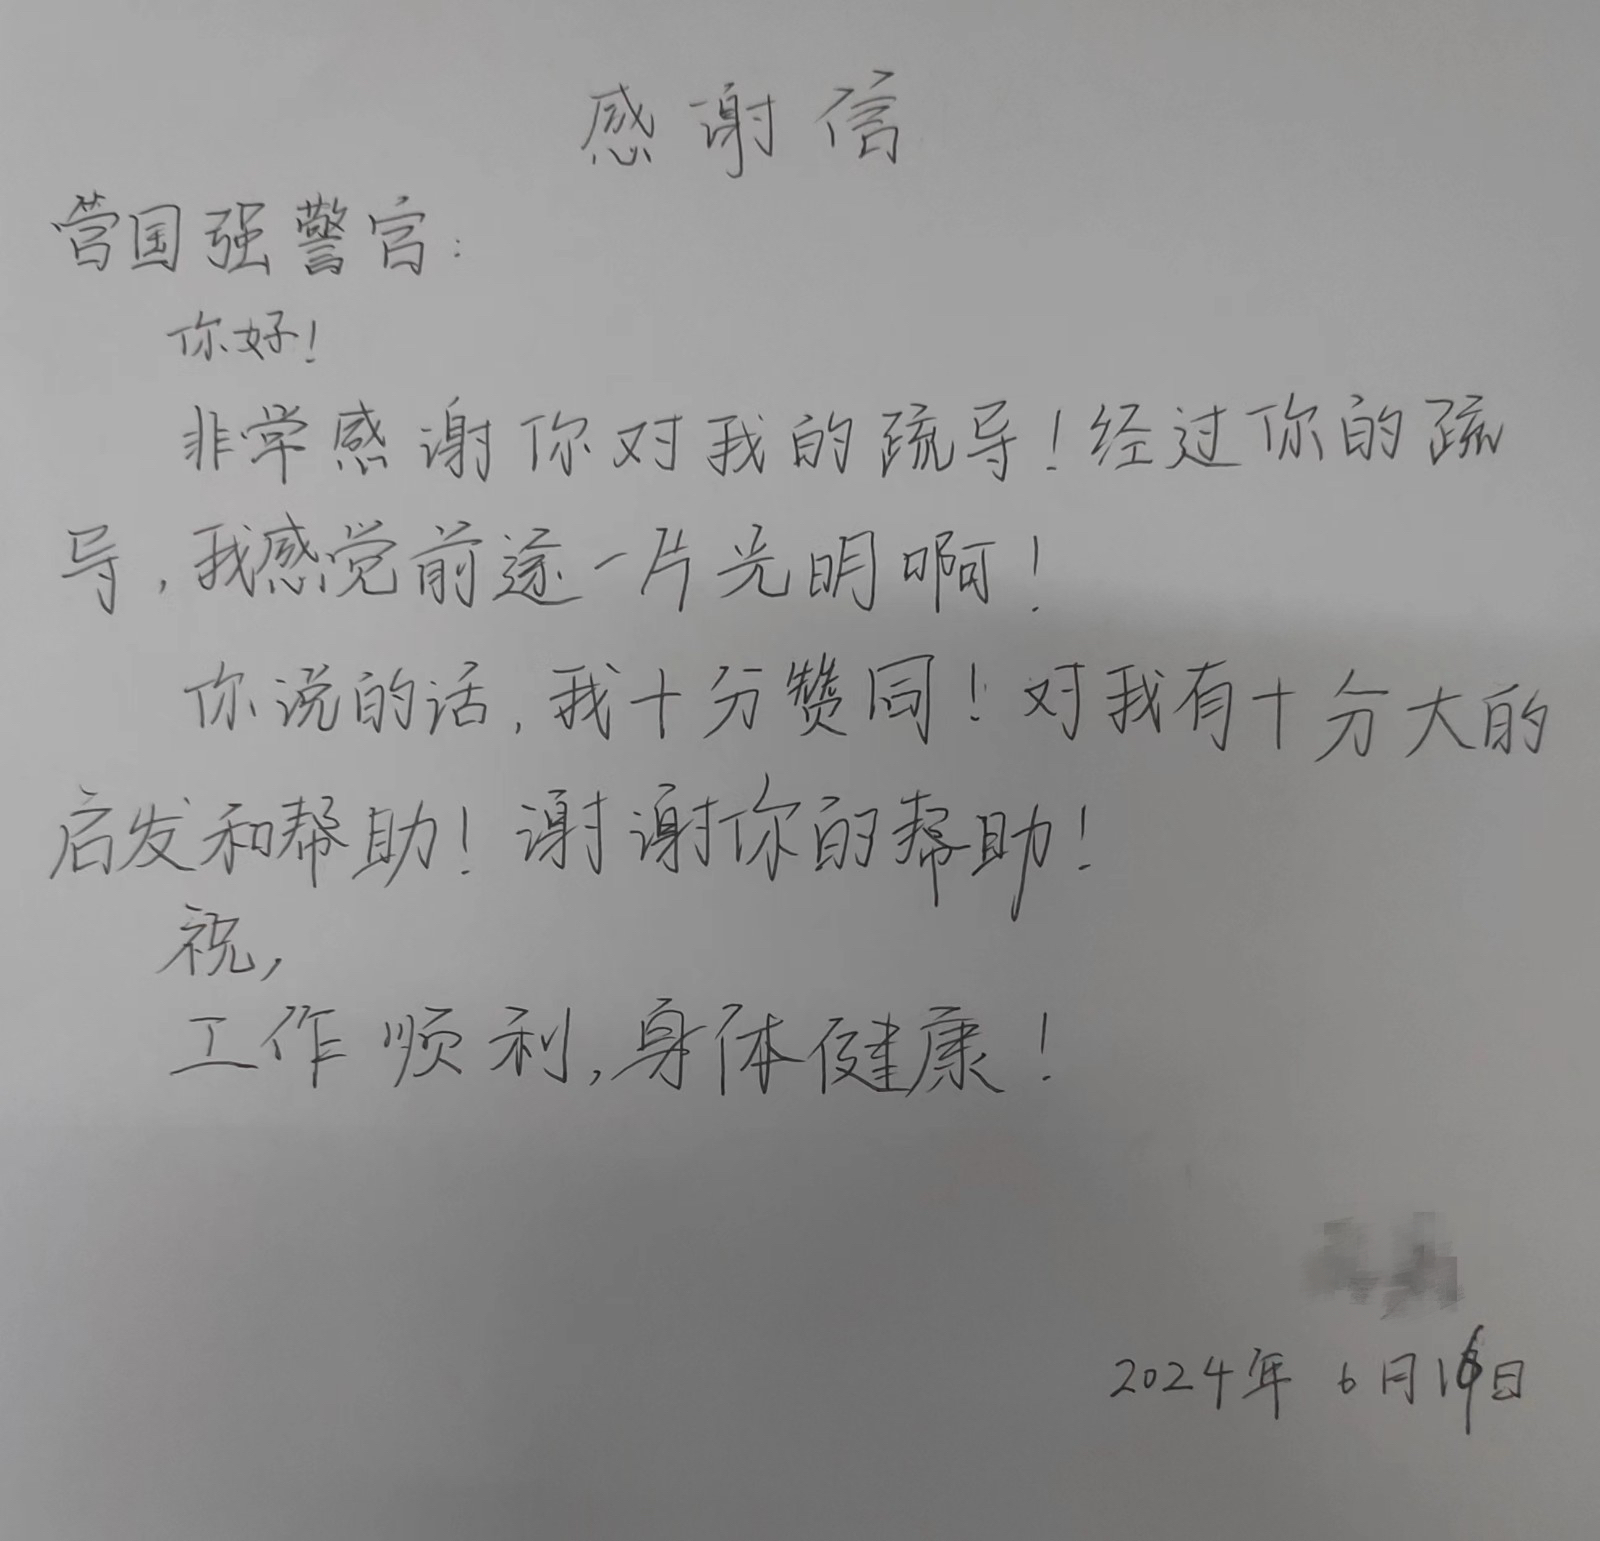 感谢信
营国强警官:
你好!
非常感谢你对我的疏导!经过你的疏
导,我感觉前途一片光明啊!
你说的话,我十分赞同!对我有十分大的
启发和帮助!谢谢你的帮助!
祝,
工作顺利,身体健康!
2024年 6月1日